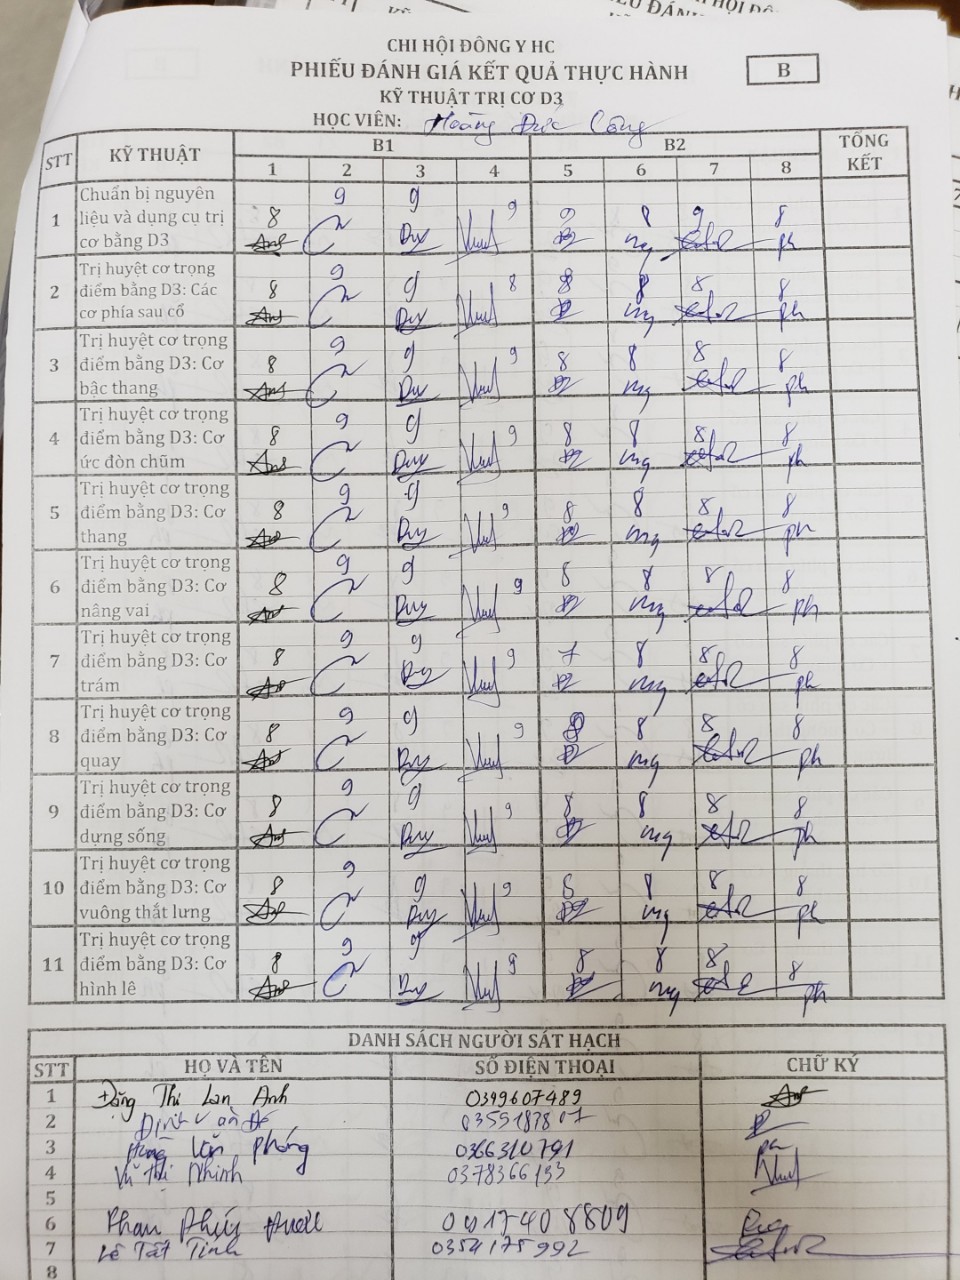 CHI HỘI ĐÔNG Y HC
PHIẾU ĐÁNH GIÁ KẾT QUẢ THỰC HÀNH
B
KỸ THUẬT TRỊ CƠ D3
HỌC VIÊN: Hoàng Đức Công
STT KỸ THUẬT B1 B2 TỔNG KẾT
1 2 3 4 5 6 7 8
1 Chuẩn bị nguyên liệu và dụng cụ trị cơ bằng D3 8 9 9 9 9 8 9 8
2 Trị huyệt cơ trọng điểm bằng D3: Các cơ phía sau cổ 8 9 9 8 8 8 8 8
3 Trị huyệt cơ trọng điểm bằng D3: Cơ bậc thang 8 9 9 9 8 8 8 8
4 Trị huyệt cơ trọng điểm bằng D3: Cơ ức đòn chũm 8 9 9 9 8 8 8 8
5 Trị huyệt cơ trọng điểm bằng D3: Cơ thang 8 9 9 9 8 8 8 8
6 Trị huyệt cơ trọng điểm bằng D3: Cơ nâng vai 8 9 9 9 8 8 8 8
7 Trị huyệt cơ trọng điểm bằng D3: Cơ trám 8 9 9 9 7 8 8 8
8 Trị huyệt cơ trọng điểm bằng D3: Cơ quay 8 9 9 9 8 8 8 8
9 Trị huyệt cơ trọng điểm bằng D3: Cơ dựng sống 8 9 9 9 8 8 8 8
10 Trị huyệt cơ trọng điểm bằng D3: Cơ vuông thắt lưng 8 9 9 9 8 8 8 8
11 Trị huyệt cơ trọng điểm bằng D3: Cơ hình lê 8 9 9 9 8 8 8 8
DANH SÁCH NGƯỜI SÁT HẠCH
STT HỌ VÀ TÊN SỐ ĐIỆN THOẠI CHỮ KÝ
1 Đặng Thị Lan Anh 0349607489
2 Đinh Văn
3 Văn Phóng 0366310791
4 Vũ Thị Nhinh
5
6 Phan
7 Lê Tất Tinh 0354175992
8